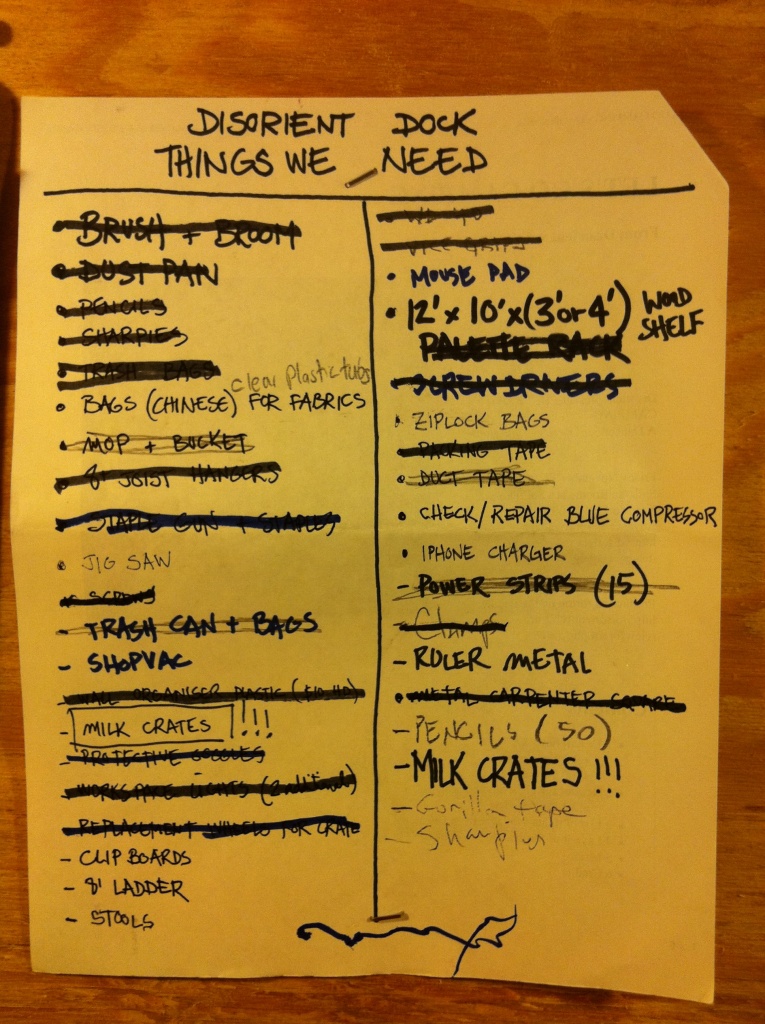 DISORIENT DOCK
THINGS WE NEED
BRUSH + BROOM
DUST PAN
PENCILS
SHARPIES
TRASH BAGS
clear Plastic tubs
BAGS (CHINESE) FOR FABRICS
MOP + BUCKET
8' JOIST HANGERS
STAPLE GUN + STAPLES
JIG SAW
SCREWS
- TRASH CAN + BAGS
- SHOPVAC
WALL ORGANISER PLASTIC
- MILK CRATES !!!
- PROTECTIVE GOGGLES
WORKSPACE LIGHTS
REPLACEMENT WHEELS FOR CRATE
- CLIP BOARDS
- 8' LADDER
- STOOLS
VICE GRIPS
• MOUSE PAD
• 12' x 10' x (3' or 4') WOOD
SHELF
PALETTE RACK
SCREWDRIVERS
• ZIPLOCK BAGS
• PACKING TAPE
• DUCT TAPE
• CHECK/REPAIR BLUE COMPRESSOR
• IPHONE CHARGER
- POWER STRIPS (15)
- Clamps
- RULER METAL
• METAL CARPENTER SQUARE
- PENCILS (50)
- MILK CRATES !!!
- Gorilla tape
- Sharpies